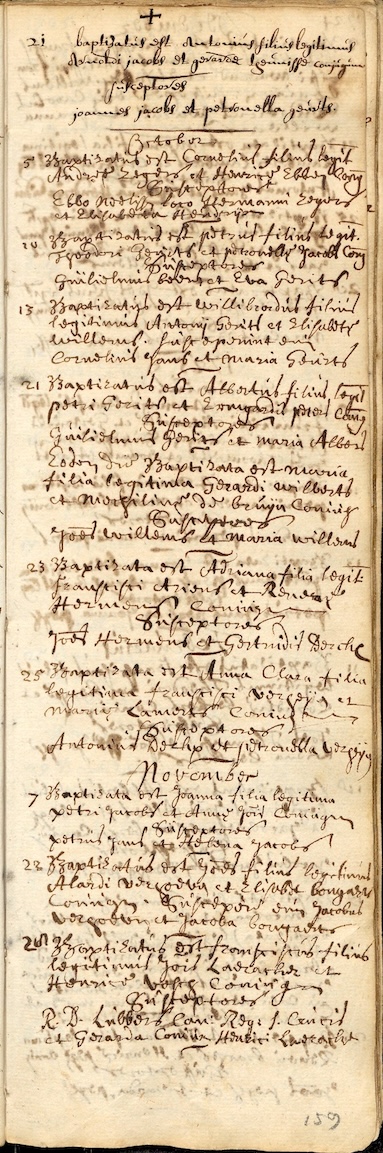 +
21 baptizatus est Antonius filius legitimus
Arnoldi Jacobs et Gerardæ conjugum
susceptores
Joannes Jacobs et Petronella Geurts.
October
5 Baptizatus est Cornelius filius legit
Andreæ Zegers et Henricæ Ebben Conj
Susceptores
Ebbo loco Hermanni Zegers
et Elisabetha
10 Baptizatus est petrus filius legit.
Theodori Geurts et petronellæ Jacobs Conj
Susceptores
Guilielmus et Eva Gerits
13 Baptizatus est Willibrordus filius
legitimus Antonij Gerits et Elisabeth
Willems. Susceperunt eum
Cornelius Jans et Maria Geurts
21 Baptizatus est Albertus filius legit
petri Gerits et peters Conj
Susceptores
Guilielmus Gerits et Maria Albers
Eodem die Baptizata est Maria
filia legitima Gerardi Wilberts
et de bruyn Coniug
Susceptores
Joes Willems et Maria Willems
23 Baptizata est Adriana filia legit
Francisci Ariens et
Hermens Coniugum
Susceptores
Joes Hermens et Gertrudis
25 Baptizata est Anna Clara filia
legitima Francisci Vergeyn et
Mariæ Lamerts Coniugum
Susceptores
Antonius et Petronella Vergeyn
November
7 Baptizata est Joanna filia legitima
petri Jacobs et Annæ Jois Coniugum
Susceptores
petrus Jans et Helena Jacobs
22 Baptizatus est Joes filius legitimus
Alardi Verhoeven et Elisabet bongaerts
Coniugum. Suscepere eum Jacobus
Verhoeven et Jacoba bongaerts
28 Baptizatus est Franciscus filius
legitimus Jois Laeracker et
Henricæ Coniugum
Susceptores
R. D. Lubbers Can: Reg: S. Crucis
et Gerarda Coniux Henrici Laeracker
159